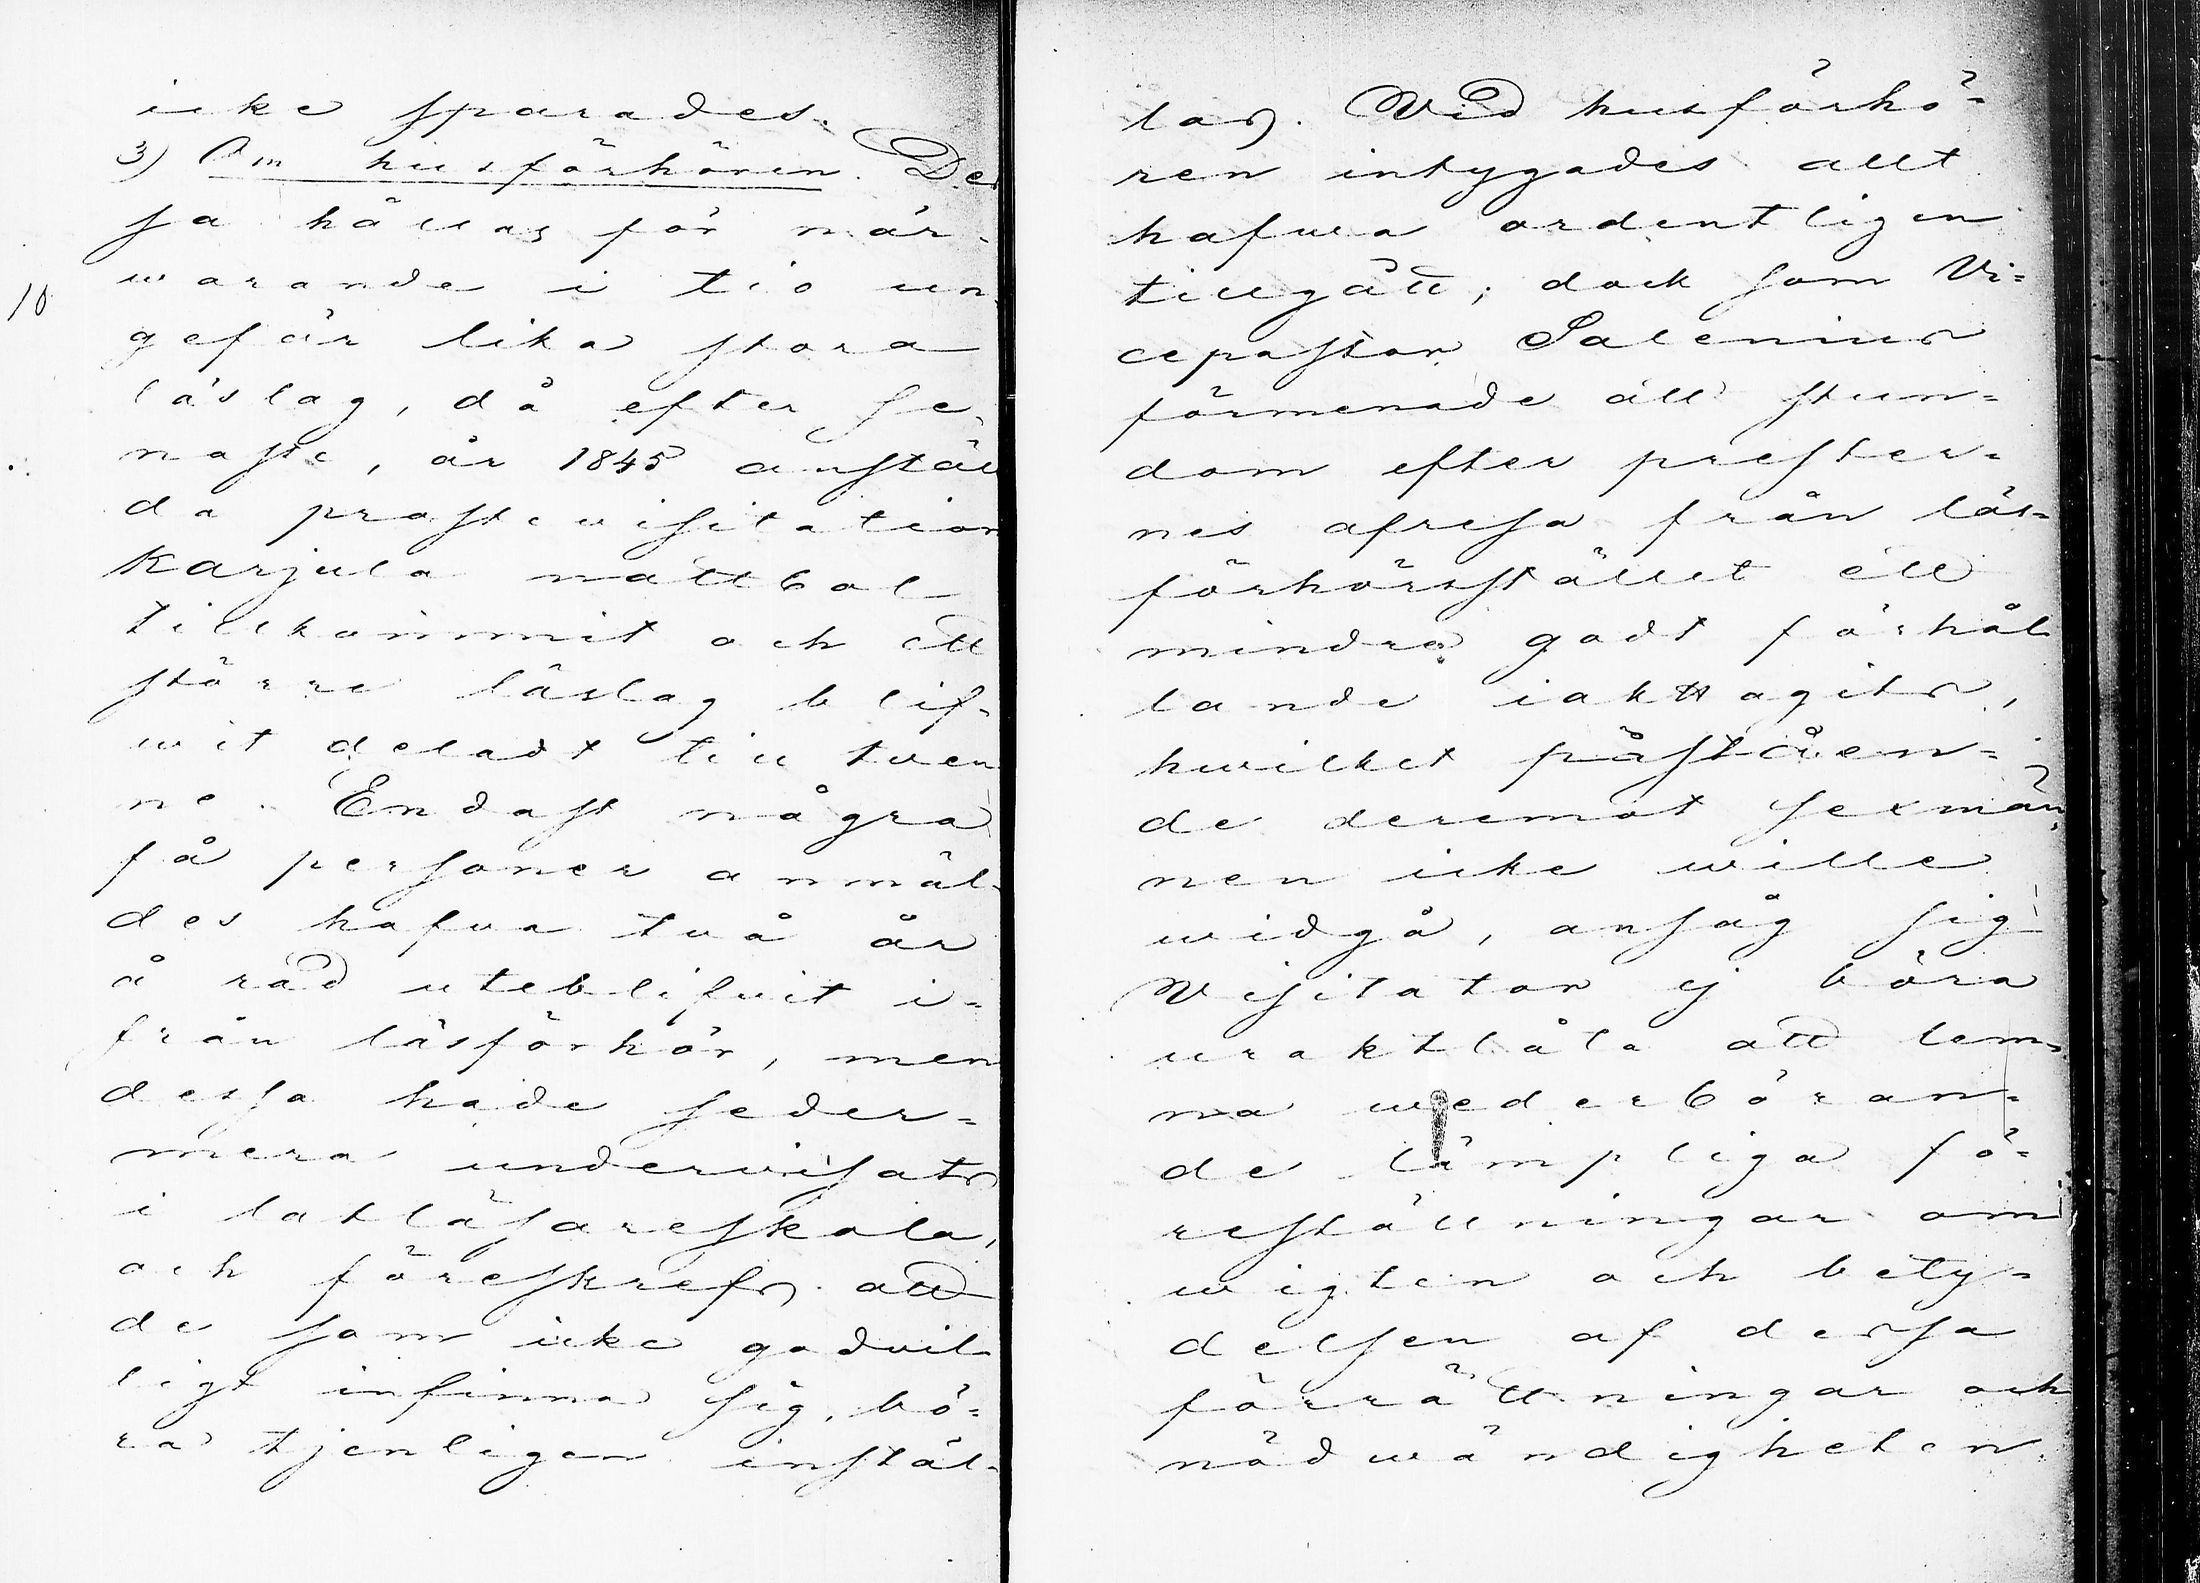 icke sparades.
3) Om husförhören. Des
sa hållas för när-
warande i tio un-
10
gefär lika stora
läslag, då efter se-
naste, år 1845 anstäl
da prostevisitation
Karjula nattbol
tillkommit och ett
större läslag blif-
wit deladt till twen
ne. Endast några
få personer anmäl-
des hafva två år
å rad uteblifvit i=
från läsförhör, men
dessa hade seder=
mera undervisats
i latläsareskola,
och föreskrefs att
de som icke godvil
ligt infinna sig, bö=
ra tjenligen instäl-
las. Vid husförhö=
ren intygades allt
hafwa ordentligen
tillgått; dock som Vi=
cepastor Salenius
förmenade att stun=
dom efter prester=
nes afresa från läs=
förhörsstället ett
mindre godt förhål
lande iakttagits,
hwilket påståen=
de deremot sexmän
nen icke wille
widgå, ansåg sig
Visitator ej böra
uraktlåta att lem=
na wederböran=
de lämpliga fö=
reställningar om
wigten och bety=
delsen af dessa
förrättningar och
nödwändigheten